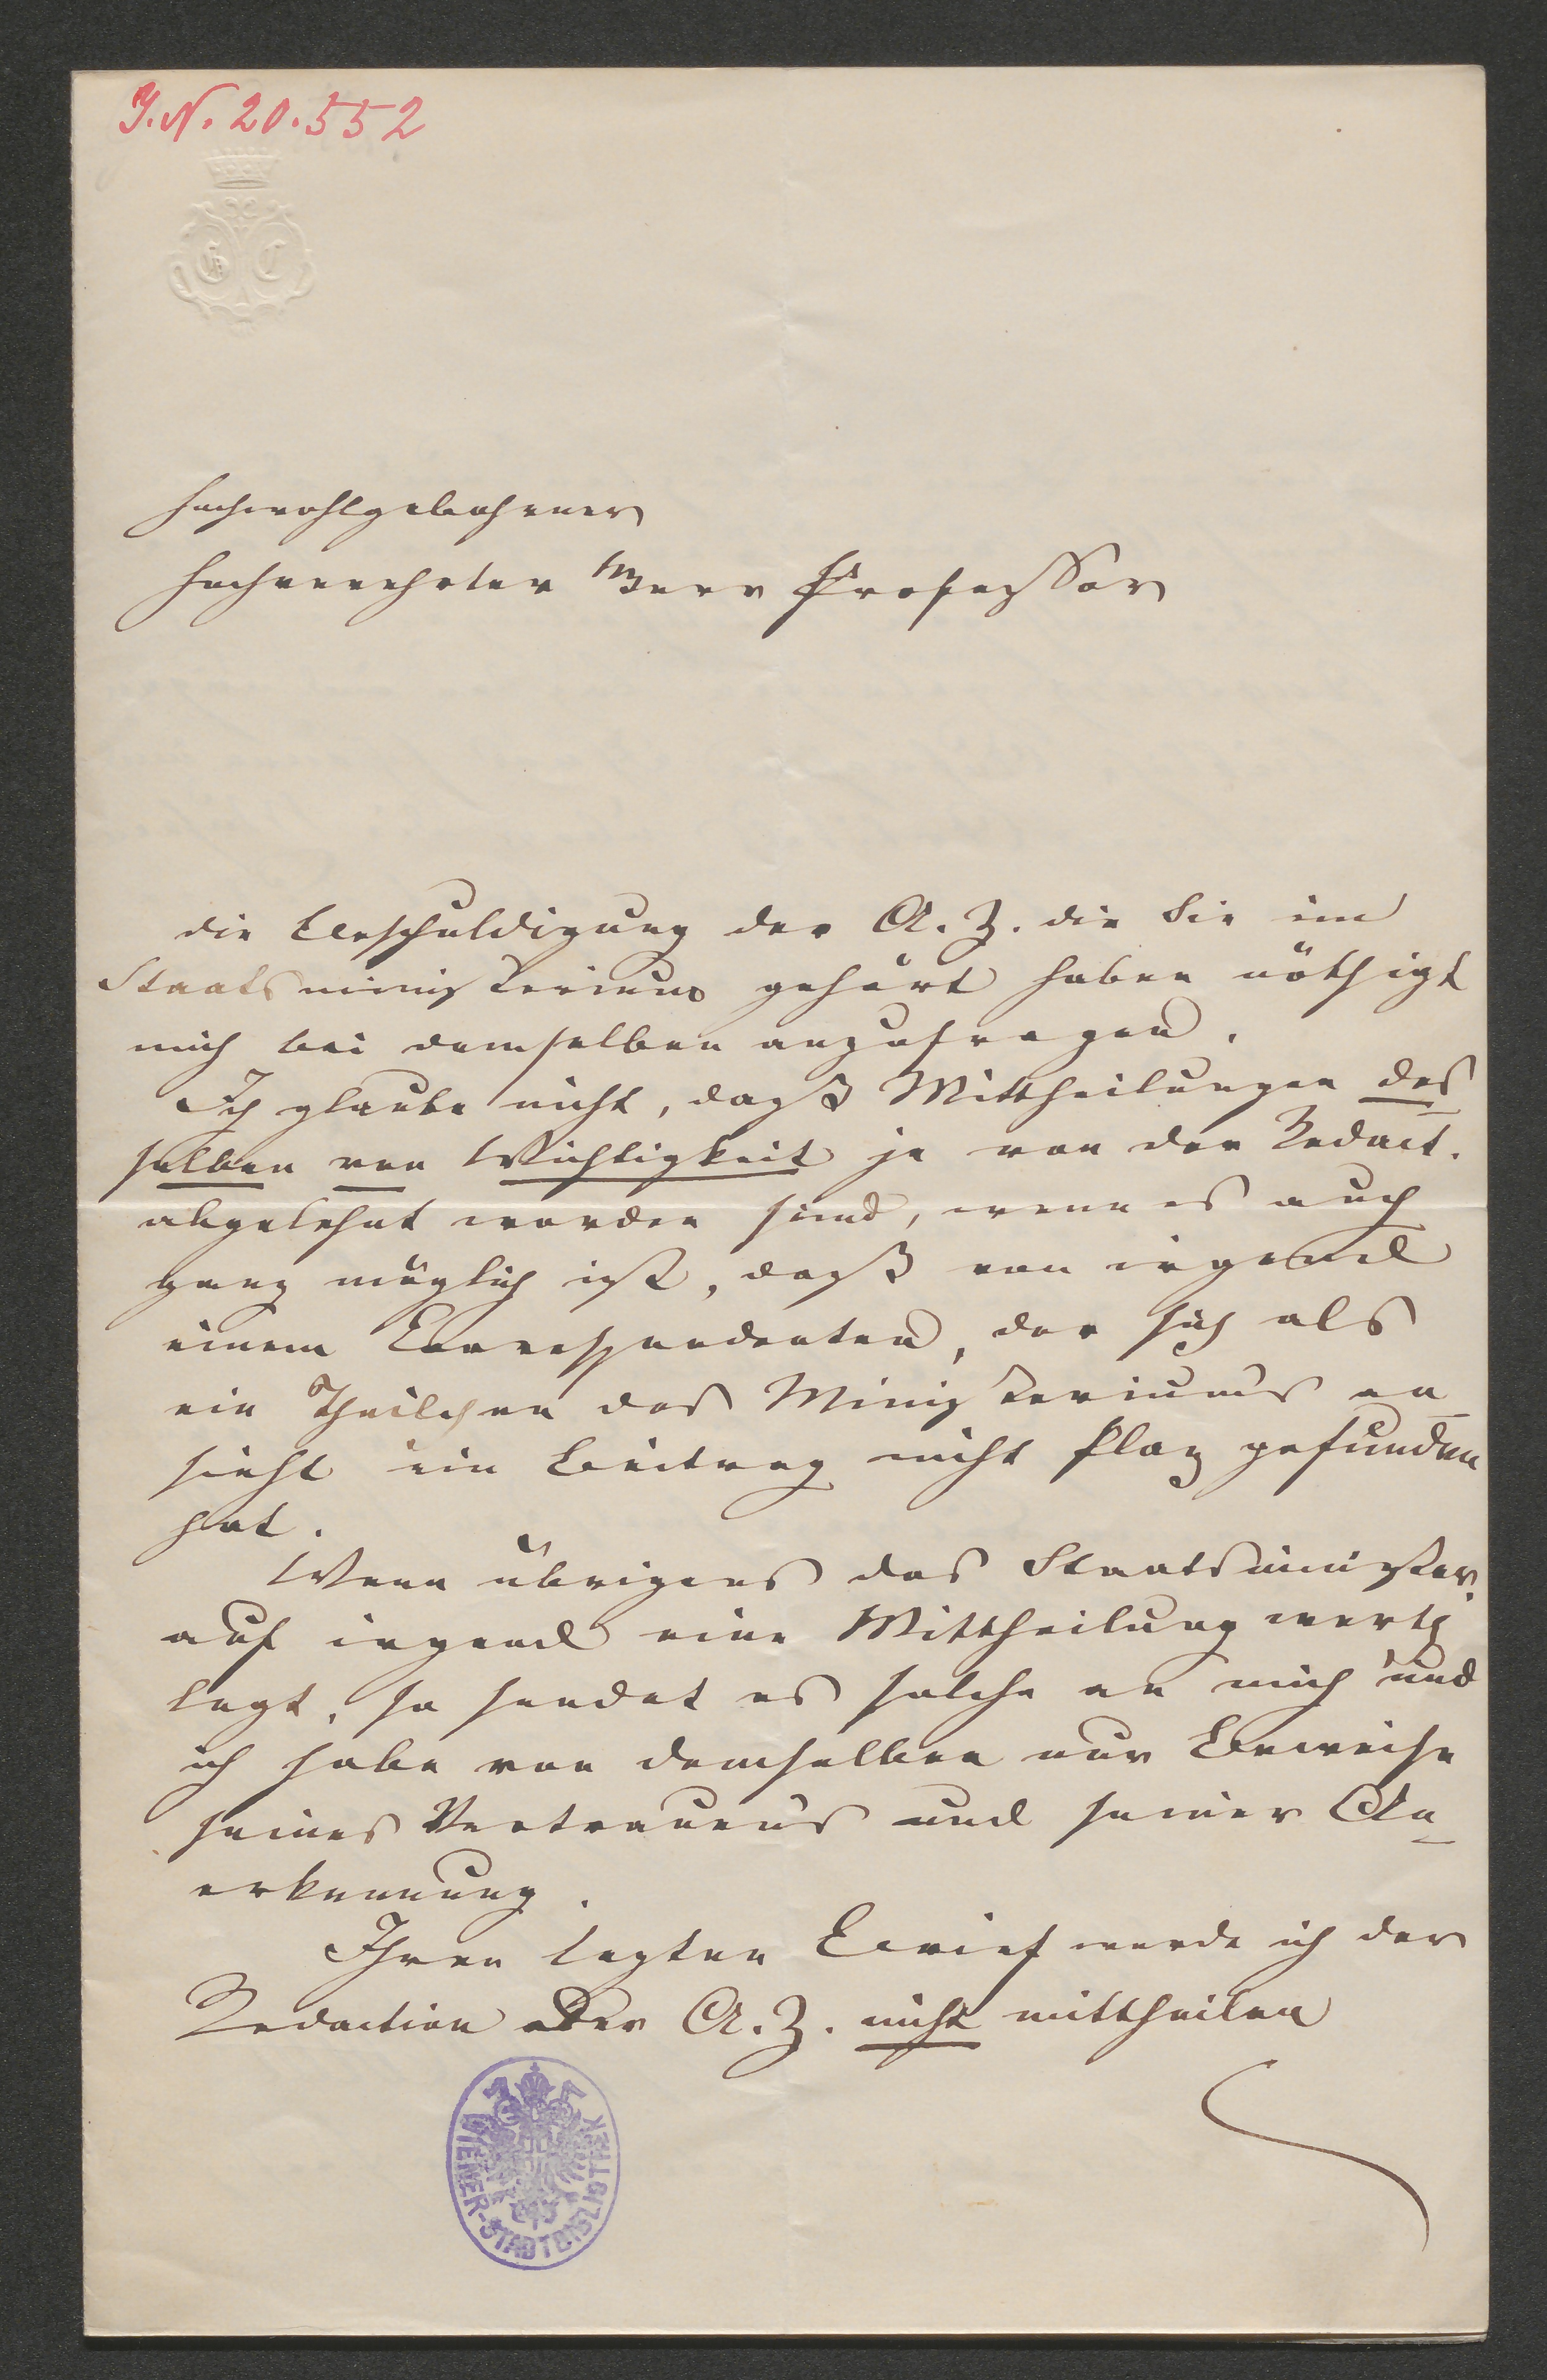 J. N. 20.552
G C
Hochwohlgebohrner
Hochverehrter Herr Professor
die Beschuldigung der A. Z. die Sie im
Staatsministerium gehört haben nöthigt
mich bei demselben anzufragen.
Ich glaube nicht, dass Mittheilungen des
selben von Wichtigkeit je von der Redact.
abgelehnt worden sind, wenn es auch
ganz möglich ist, dass von irgend
einem Correspondenten, der sich als
ein Theilchen des Ministeriums an
sieht ein Beitrag nicht Plaz gefunden
hat.
Wenn übrigens das Staatsminister.
auf irgend eine Mittheilung werth
legt, so sendet es solche an mich und
ich habe von demselben nur Beweise
seines Vertrauens und seiner An
erkennung.
Ihren lezten Brief werde ich der
Redaction der A. Z. nicht mittheilen
WIENER-STADTBIBLIOTHEK